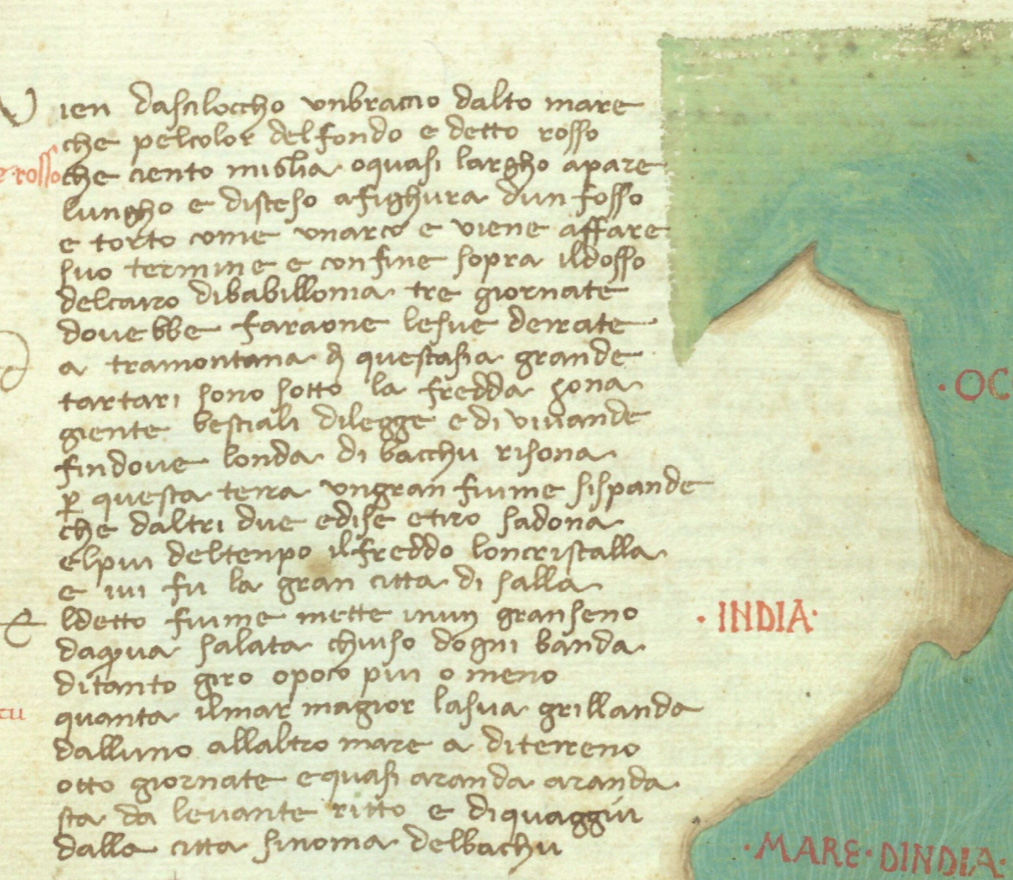 Vien dasciloccho unbraccio dalto mare
che pelcolor delfondo e detto rosso
e rosso
che ciento miglia oquasi largho apare
lungho e disceso afighura dun fosso
e torto come unarco e viene affare
suo termine e confine sopra ildosso
delcairo dibabillonia tre giornate
dovebbe faraone lesue derrate
a tramontana di questasia grande
tartari sono sotto la fredda çona
giente bestiali dilegge e di vivande
findove londa di bacchu risona
p questa terra ungran fiume sispande
che daltri due edise etiro sadona
elpiu deltenpo ilfreddo loncristalla
e ivi fu la gran citta di salla
Eldetto fiume mette inun granseno
daqua salata chiuso dogni banda
ditanto giro opoco piu o meno
quanta ilmar magior lasua grillanda
dalluno allaltro mare a diterreno
otto giornate equasi aranda aranda
sta da levante ritto e diquaggiu
dalla citta sinoma delbachu
· INDIA ·
· OC
· MARE · DINDIA ·